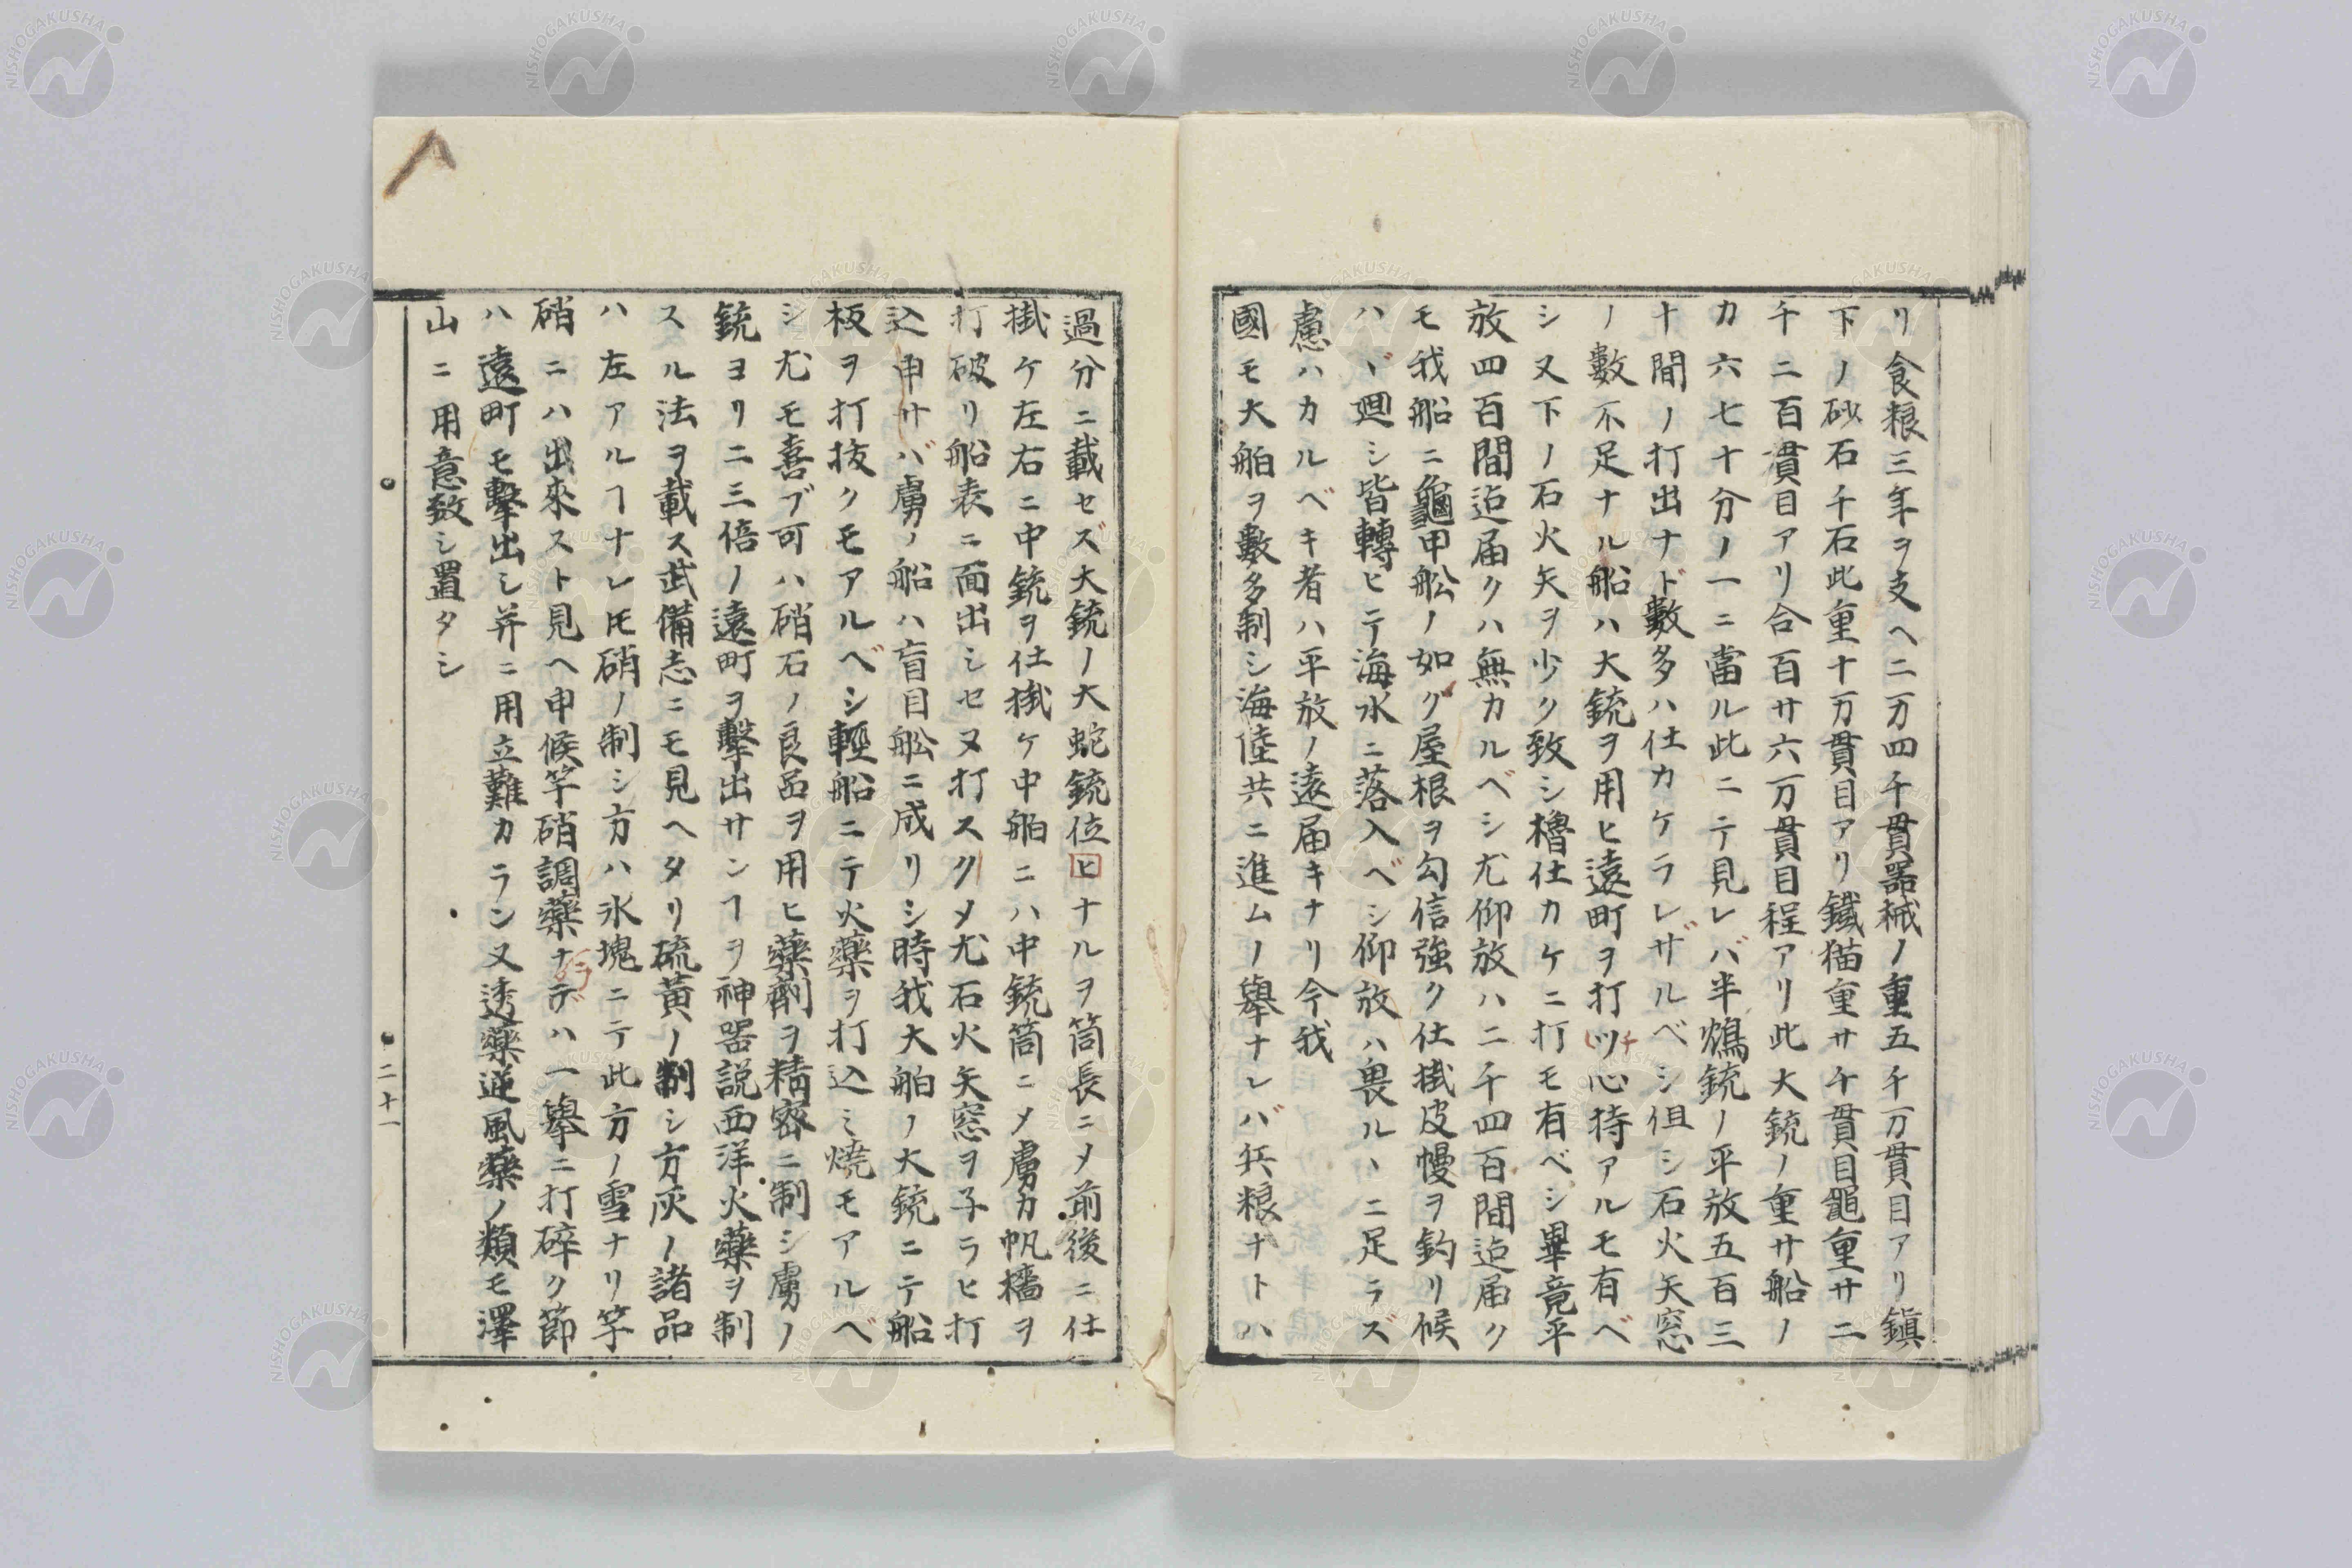 リ食粮三年ヲ支ヘ二万四千貫器械ノ重五千万貫目アリ鎭
下ノ砂石千石此重十万貫目アリ鐵猫重サ千貫目鼀重サ二
千二百貫目アリ合百廿六万貫目程アリ此大銃ノ重サ船ノ
カ六七十分ノ一ニ當ル此ニテ見レバ半鴆銃ノ平放五百三
十間ノ打出ナド數多ハ仕カケラレザルベシ但シ石火矢窓
ノ數不足ナル船ハ大銃ヲ用ヒ遠町ヲ打ツ心持アルモ有ベ
シ又下ノ石火矢ヲ少ク致シ櫓仕カケニ打モ有ベシ畢竟平
放四百間迠届クハ無カルベシ尤仰放ハ二千四百間迠届ク
モ我船ニ龜甲舩ノ如ク屋根ヲ勾信強ク仕掛皮幔ヲ釣リ候
ハヾ廻シ皆轉ビテ海水ニ落入ベシ仰放ハ畏ルヽニ足ラズ
慮ハカルベキ者ハ平放ノ遠届キナリ今我
國モ大舶ヲ數多制シ海陸共ニ進ムノ擧ナレバ兵粮ナトハ
過分ニ載セズ大銃ノ大蛇銃位ヒナルヲ筒長ニメ前後ニ仕
掛ケ左右ニ中銃ヲ仕掛ケ中舶ニハ中銃筒ニメ虜カ帆檣ヲ
打破リ船表ニ面出シセヌ打スクメ尤石火矢窓ヲ子ラヒ打
込申サバ虜ノ船ハ盲目舩ニ成リシ時我大舶ノ大銃ニテ船
板ヲ打抜クモアルベシ輕船ニテ火藥ヲ打込ミ燒モアルベ
シ尤モ喜ブ可ハ硝石ノ良品ヲ用ヒ藥劑ヲ精密ニ制シ虜ノ
銃ヨリ二三倍ノ遠町ヲ擊出サンヿヲ神器説西洋火藥ヲ制
スル法ヲ載ス武備志ニモ見ヘタリ硫黃ノ制シ方灰ノ諸品
ハ左アルヿナレ𪜈硝ノ制シ方ハ氷塊ニテ此方ノ雪ナリ竿
硝ニハ出來スト見ヘ申候竿硝調藥ナデハ一擧ニ打碎ク節
ハ遠町モ擊出シ并ニ用立難カラン又透藥逆風藥ノ類モ澤
山ニ用意致シ置タシ
二十一